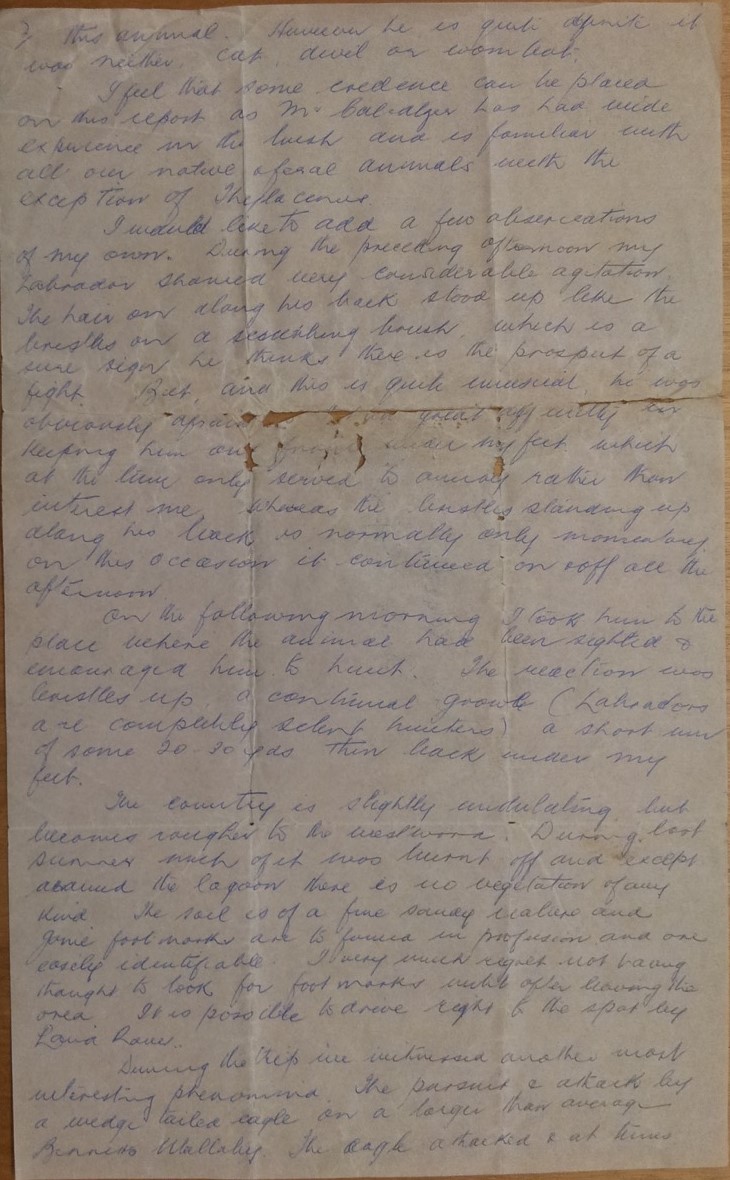 this animal. However he is quite definite it
was neither cat, devil or wombat.
I feel that some credence can be placed
on this report as Mr has had wide
experience in the bush and is familiar with
all our native & feral animals with the
exception of
I would like to add a few observations
of my own. During the preceding afternoon my
Labrador showed very considerable agitation.
The hair on along his back stood up like the
bristles on a scrubbing brush, which is a
sure sign he thinks there is the prospect of a
fight. But, and this is quite unusual, he was
obviously great difficulty in
keeping him out from under my feet which
at the time only served to annoy rather than
interest me, whereas the bristles standing up
along his back is normally only momentary
on this occasion it continued on & off all the
afternoon
On the following morning I took him to the
place where the animal had been sighted &
encouraged him to hunt. The reaction was
bristles up, a continual growl (Labradors
are completely silent hunters) a short run
of some 20-30 yds then back under my
feet.
The country is slightly undulating but
becomes rougher to the westward. During last
summer much of it was burnt off and except
around the lagoon there is no vegetation of any
kind The soil is of a fine sandy nature and
game foot marks are to found in profusion and are
easily identifiable. I very much regret not having
thought to look for foot marks until after leaving the
area It is possible to drive right to the spot by
Land Rover.
During the trip we witnessed another most
interesting The pursuit & attack by
a wedge tailed eagle on a larger than average
Bennetts Wallaby. The eagle attacked & at times